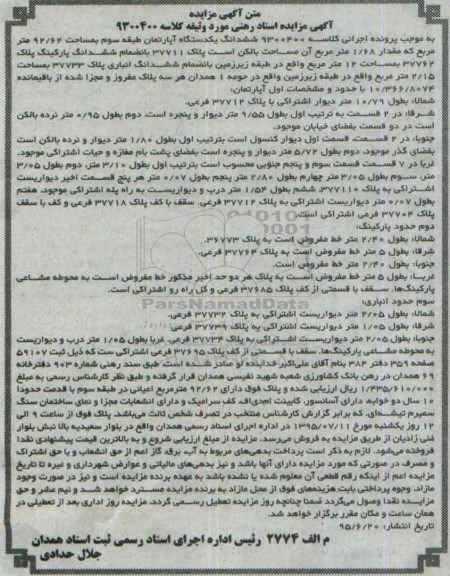 متن آگهی مزایده
آگهی مزایده اسناد رهنی مورد وثیقه کلاسه ۹۳۰۰۴۰۰
به موجب پرونده اجرائی کلاسه ۹۳۰۰۴۰۰ ششدانگ یکدستگاه آپارتمان طبقه سوم بمساحت ۹۲/۶۲ متر
مربع که مقدار ۱/۶۸ متر مربع آن مساحت بالکن است پلاک ۳۷۷۱۱ بانضمام ششدانگ پارکینگ پلاک
۳۷۷۶۲ بمساحت ۱۲ متر مربع واقع در طبقه زیرزمین بانضمام ششدانگ انباری پلاک ۳۷۷۳۳ بمساحت
۲/۱۵ متر مربع واقع در طبقه زیرزمین واقع در حومه ۱ همدان هر سه پلاک مفروز و مجزا شده از باقیمانده
۱۰/۳۶۶/۸۰۷۴ با حدود و مشخصات اول آپارتمان:
شمالا: بطول ۱۰/۷۹ متر دیوار اشتراکی با پلاک ۳۷۷۱۲ فرعی.
شرقا: در ۲ قسمت به ترتیب اول بطول ۹/۵۵ متر دیوار و پنجره است. دوم بطول ۰۹۵ متر نرده بالکن
است در دو قسمت بفضای خیابان موجود.
جنوبا: در ۲ قسمت، قسمت اول دیوار کنسول است بترتیب اول بطول ۱/۸۰ متر دیوار و نرده بالکن است
بفضای گذر موجود. دوم بطول ۵/۷۲ متر دیوار و پنجره است بفضای پشت بام مغازه و حیات اشتراکی موجود.
غربا در ۷ قسمت قسمت سوم و پنجم جنوبی محسوب است بترتیب اول بطول ۳/۱۰ متر، دوم بطول ۲/۰۵
متر، سوم بطول ۳/۰۵ متر چهارم بطول ۲/۸۰ متر پنجم بطول ۰/۰۷ متر هر پنج قسمت اخیر دیواریست
اشتراکی به پلاک ۳۷۷۱۱۰ ششم بطول ۱/۵۴ متر درب و دیواریست به راه پله اشتراکی موجود. هفتم
بطول ۰/۰۷ متر دیواریست اشتراکی به پلاک ۳۷۷۱۲ فرعی. سقف با کف پلاک ۳۷۷۱۸ فرعی و کف با سقف
پلاک ۳۷۷۰۴ فرعی اشتراکی است.
دوم حدود پارکینگ:
شمالا: بطول ۲/۴۰ متر خط مفروض است به پلاک ۳۶۷۷۳.
شرقا: بطول ۵ متر خط مفروض است به پلاک ۳۷۷۶۴ فرعی.
جنوبا: بطول ۲/۴۰ متر خط مفروض است.
غربا: بطول ۵ متر خط مفروض است به پلاک هر دو حد اخیر مذکور خط مفروض است به محوطه مشاعی
پارکینگ‌ها. سقف با قسمتی از کف پلاک ۳۷۶۸۵ فرعی و کل راه رو اشتراکی است.
سوم حدود انباری:
شمالا: بطول ۲/۰۵ متر دیواریست اشتراکی به پلاک ۳۷۷۳۲ فرعی.
شرقا: بطول ۱/۰۵ متر دیواریست اشتراکی به پلاک ۳۷۷۳۹ فرعی.
جنوبا: بطول ۲/۰۵ متر دیواریست اشتراکی به پلاک ۳۷۷۳۴ فرعی. غربا بطول ۱/۰۵ متر درب و دیواریست
به محوطه مشاعی پارکینگ‌ها. سقف با قسمتی از کف پلاک ۳۷۶۹۵ فرعی اشتراکی ست که ذیل ثبت ۵۹۱۰۷
صفحه ۳۵۹ دفتر ۳۸۴ بنام آقای علی‌اکبر خدابنده لو صادر شده است. طبق سند رهنی شماره ۹۰۳ دفترخانه
۶۹ همدان در رهن بانک کشاورزی شعبه شهید نفیسی همدان قرار گرفته و طبق نظر کارشناس رسمی به مبلغ
۱/۴۳۵/۶۱۰/۰۰۰ ریال ارزیابی شده و پلاک فوق دارای ۹۲/۶۲ مترمربع اعیانی در طبقه سوم با قدمت حدودا
۱۰ سال دو خوابه. دارای آسانسور، کابینت ام‌دی‌اف، کف سرامیک و دارای انشعابات مجزا و نمای ساختمان سنگ
سمیرم تیشه‌ای، که برابر گزارش کارشناس منتخب در تصرف شخص ثالث می‌باشد. پلاک فوق از ساعت ۹ الی
۱۲ روز یکشنبه مورخ ۱۳۹۵/۰۷/۱۱ در اداره اجرای اسناد رسمی همدان واقع در بلوار سعیدیه بالا نبش بلوار
غنی زادیان از طریق مزایده به فروش می‌رسد. مزایده از مبلغ ارزیابی شروع و به بالاترین قیمت پیشنهادی نقدا
فروخته می‌شود. لازم به ذکر است پرداخت بدهی‌های مربوط به آب، برق، گاز اعم از حق انشعاب و یا حق اشتراک
و مصرف در صورتی که مورد مزایده دارای آنها باشد و نیز بدهی‌های مالیاتی و عوارض شهرداری و غیره تا تاریخ
مزایده اعم از اینکه رقم قطعی آن معلوم شده یا نشده باشد به عهده برنده مزایده است و نیز در صورت وجود
مازاد، وجوه پرداختی بابت هزینه‌های فوق از محل مازاد به برنده مزایده مسترد خواهد شد و نیم عشر و حق
مزایده نقدا وصول می‌گردد ضمنا چنانچه روز مزایده تعطیل رسمی گردد. مزایده روز اداری بعد از تعطیلی در
همان ساعت و مکان مقرر برگزار خواهد شد.
تاریخ انتشار: ۹۵/۶/۲۰
م الف ۲۷۷۴ رئیس اداره اجرای اسناد رسمی ثبت اسناد همدان
جلال حدادی